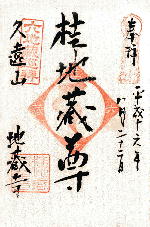 奉拝
平成十六年
八月二十二日
桂地蔵尊
久遠山
地蔵寺